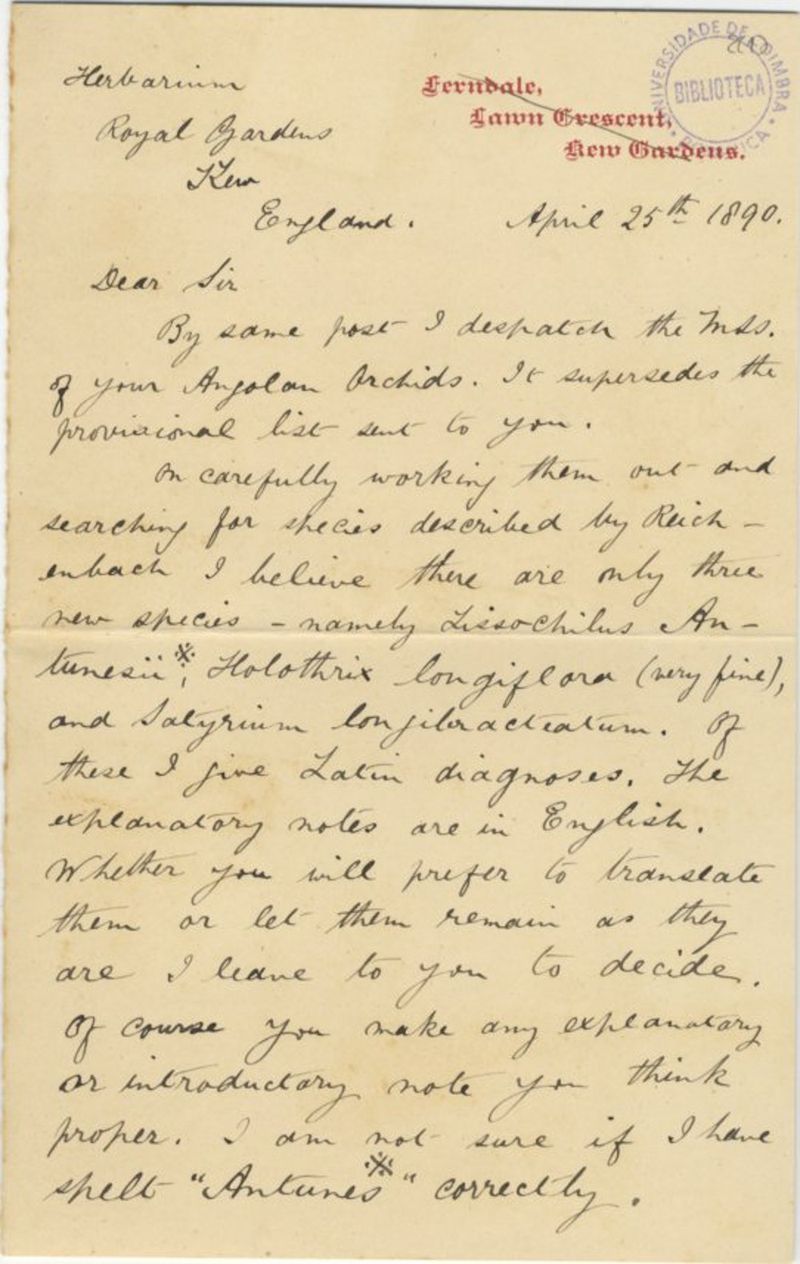 UNIVERSIDADE DE COIMBRA
BIBLIOTECA
Herbarium
Royal Gardens
Kew
England.
Ferndale,
Lawn Crescent,
Kew Gardens.
April 25th 1890.
Dear Sir
By same post I despatch the Mss.
of your Angolan Orchids. It supersedes the
provisional list sent to you.
On carefully working them out and
searching for species described by Reich-
enbach I believe there are only three
new species - namely Lissochilus An-
tunesii※, Holothrix longiflora (very fine),
and Satyrium longibracteatum. Of
these I give Latin diagnoses. The
explanatory notes are in English.
Whether you will prefer to translate
them or let them remain as they
are I leave to you to decide.
Of course you make any explanatory
or introductory note you think
proper. I am not sure if I have
spelt "Antunes※" correctly.